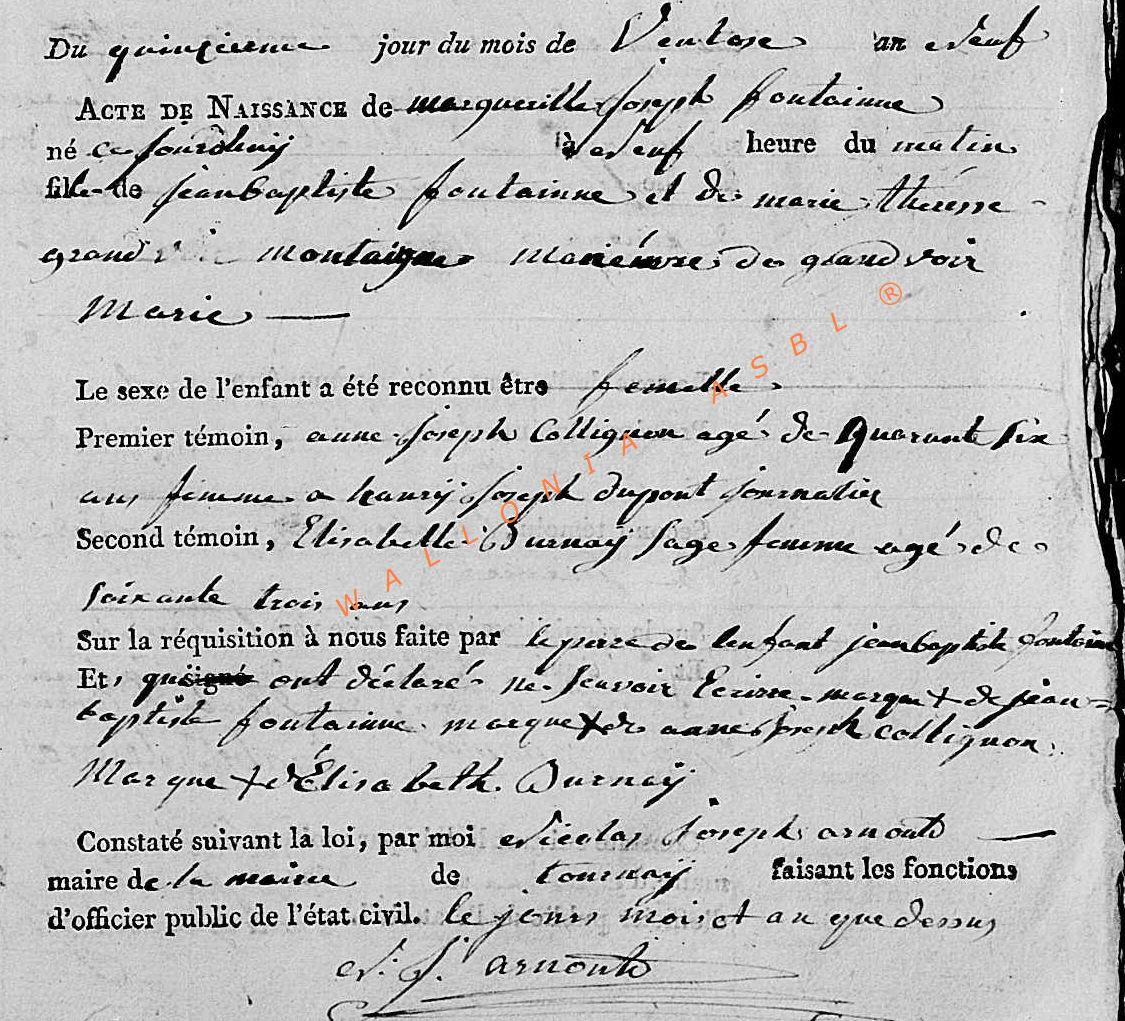 Du quinzieme jour du mois de Ventose an Neuf
ACTE DE NAISSANCE de marguerille Joseph fontainne
né ce jourdhuij à Neuf heure du matin
fille de jeanbaptiste fontainne et de marie theresse
grand montaigne manœuvre de grandvoir
Marie
Le sexe de l'enfant a été reconnu être femelle
Premier témoin, anne Joseph Collignon agé de Quarante Six
ans femme a hanrij Joseph dupont journalier
Second témoin, Elisabelle Burnaÿ Sage femme agé de
soixante trois ans
Sur la réquisition à nous faite par le perre de lenfant jeanbaptiste fontainne
Et, qui signé ont déclaré ne scavoir Ecrirre marque + de jean=
baptiste fontainne marque + de anne Joseph collignon
Marque + d'Élisabeth Burnaÿ
Constaté suivant la loi, par moi Nicolas Joseph arnould
maire de la mairie de tournaÿ faisant les fonctions
d'officier public de l'état civil. le jour mois et an que dessus
N. J. arnould
WALLONIA ASBL ®